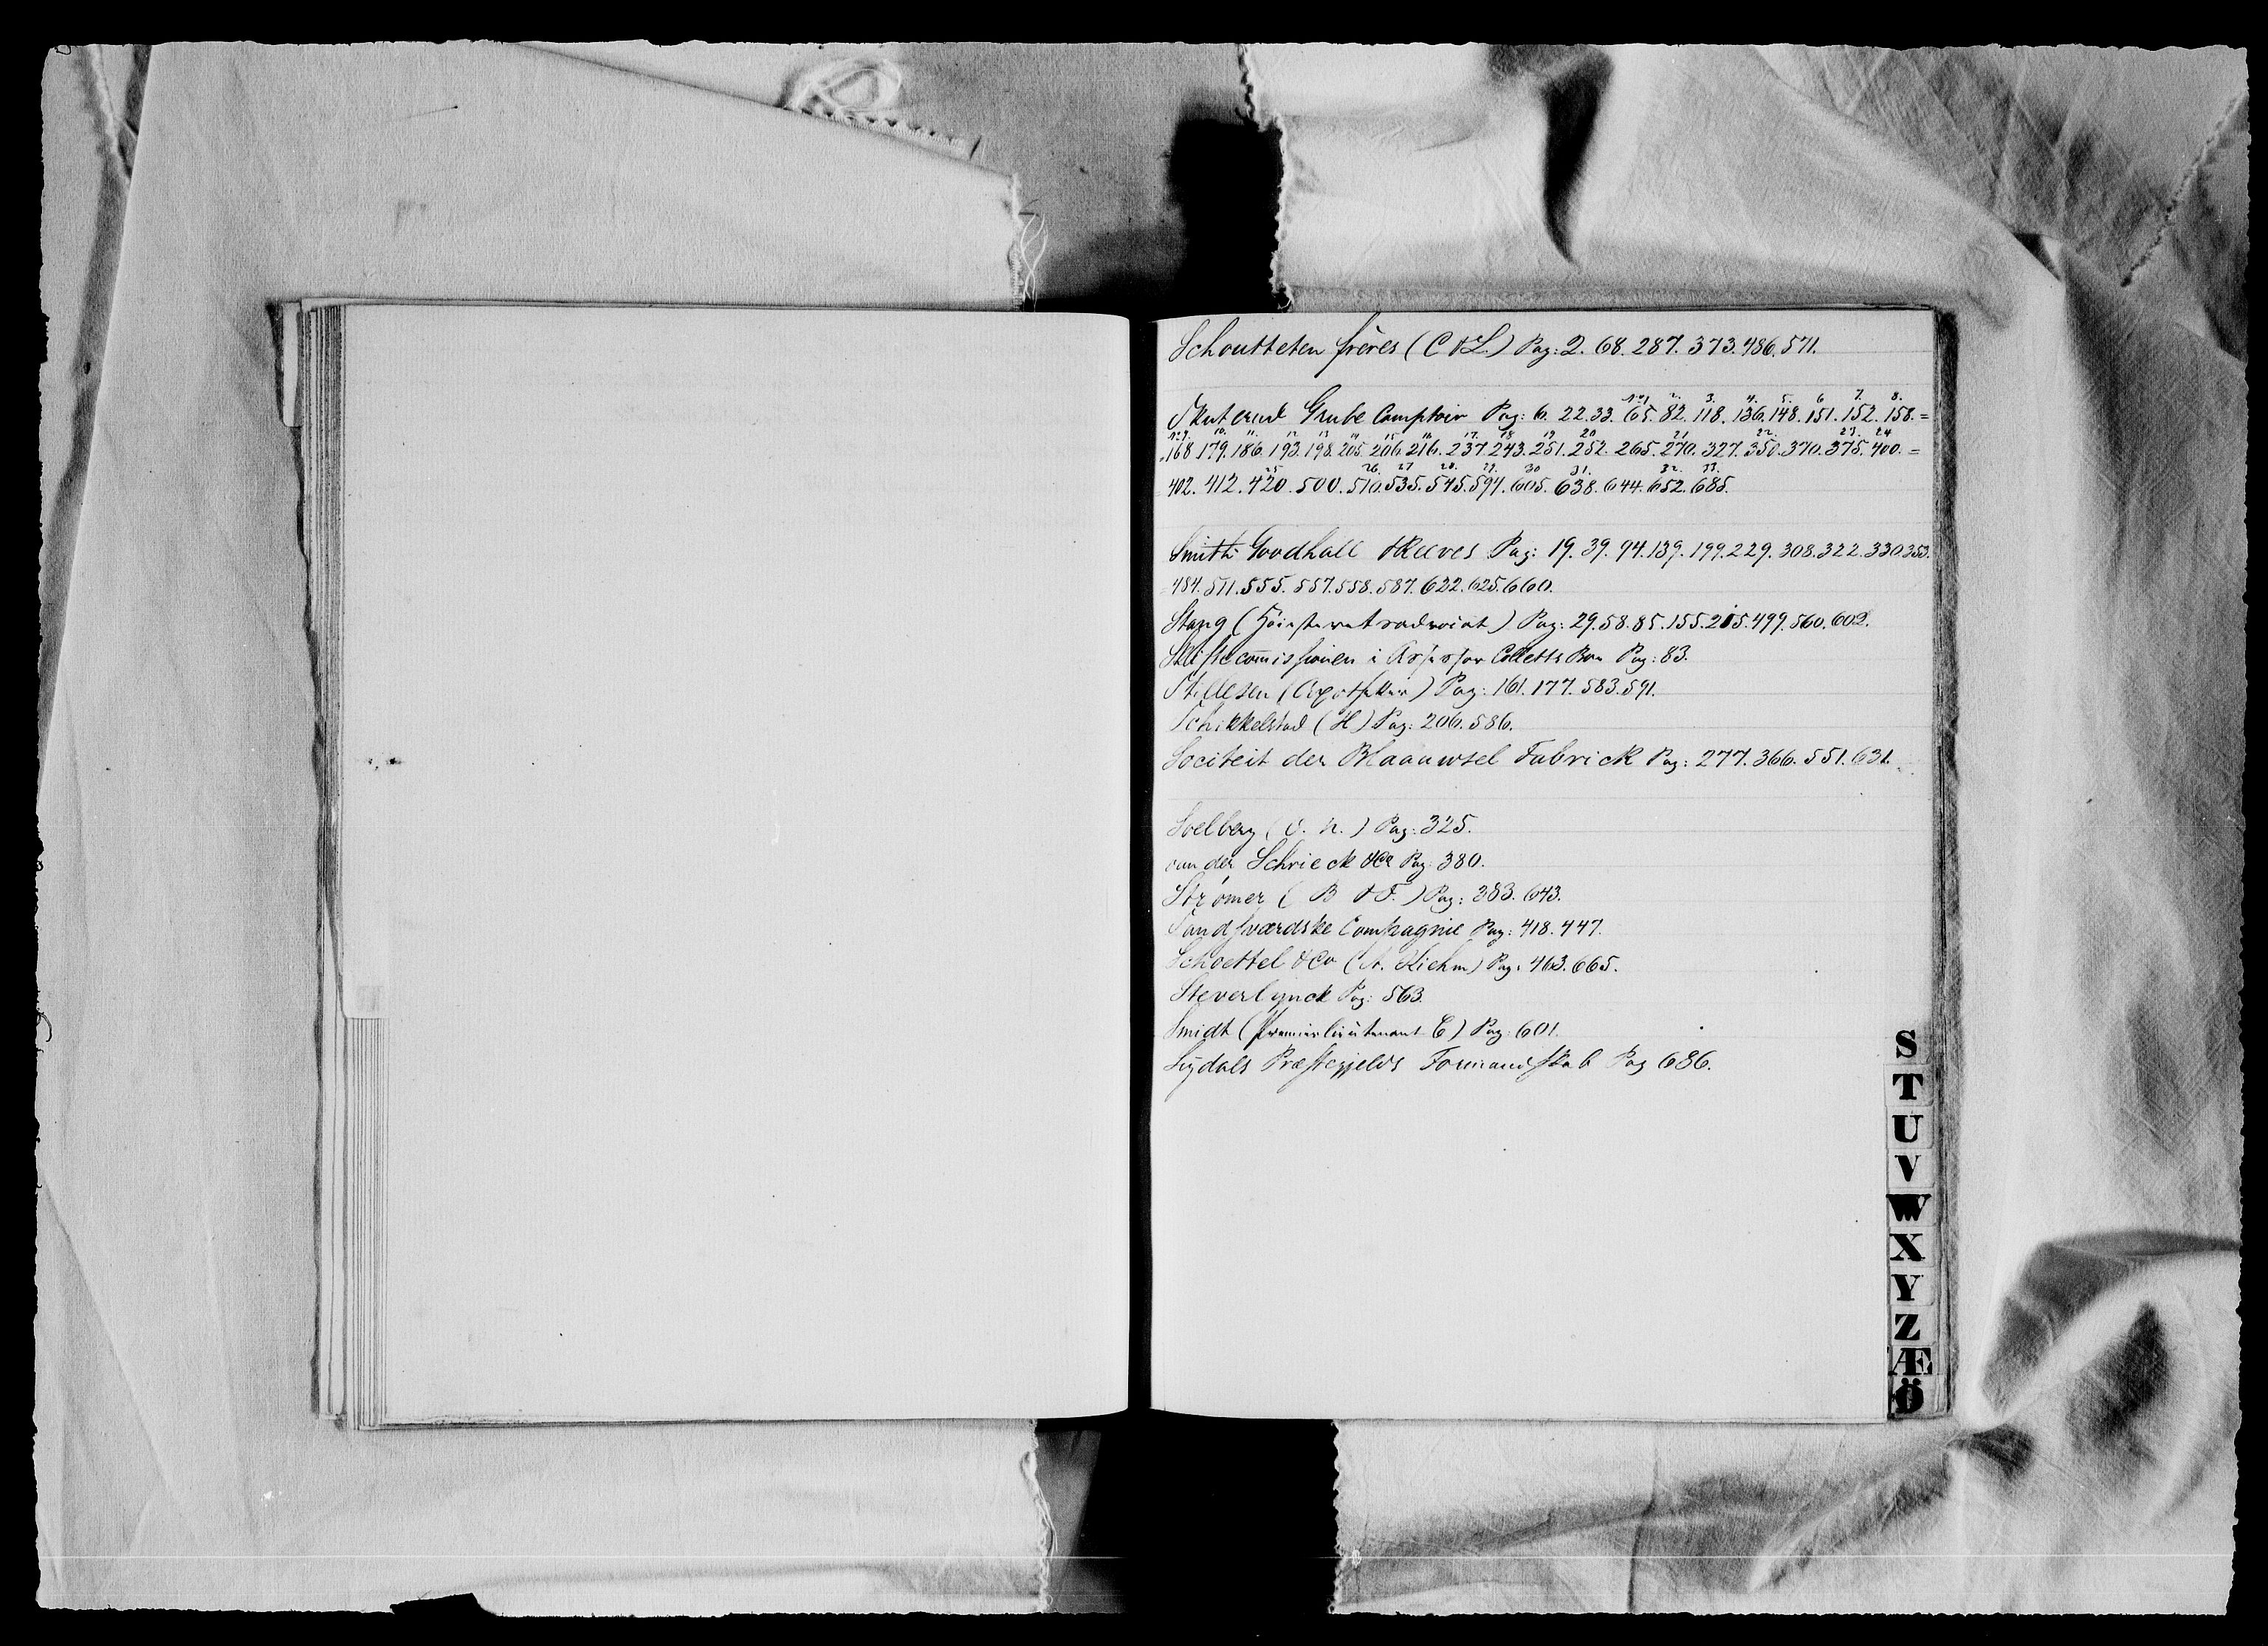 Schoutteten frères (C & L) Pag: 2. 68. 287. 373. 486. 571.
No1 2. 3. 4. 5. 6 7. 8.
Skuterud Grube Comptoir Pag: 6. 22. 33. 65. 82. 118. 136. 148. 151. 152. 158. =
No9. 10. 11. 12 13 14 15 16 17. 18 19 20 21 22. 23. 24
168 179. 186. 193. 198. 205. 206. 216. 237. 243. 251. 252. 265. 270. 327. 350. 370. 375. 400. =
25 26. 27 28. 29. 30 31. 32. 33.
402. 412. 420. 500. 510. 535. 545. 594. 605. 638. 644. 652. 685.
Smith Goodhall & Reeves Pag: 19. 39. 94. 139. 199. 229. 308. 322. 330. 353.
484. 511. 555. 557. 558. 587. 622. 625. 660.
Stang (Høiesteretsadvocat) Pag: 29. 58. 85. 155. 215. 499. 560. 602.
Skiftecommissionen i Assessor Colletts Bou Pag: 83.
Stillesen (Apotheker) Pag: 161. 177. 583. 591.
Schikkelstad (H) Pag: 206. 586.
Sociteit der Blaauwsel Fabrick Pag: 277. 366. 551. 631.
Soelberg (O. N.) Pag: 325.
van der Schrieck & Co Pag: 380.
Strömer ( B & F. ) Pag: 383. 643.
Sandsværdske Compagnie Pag: 418. 447.
Schoettel & Co (A. Kiehm) Pag: 463. 665.
Steverlynck Pag: 563.
Smidt (Premierlieutenant C) Pag: 601.
Sigdals Præstegjelds Formandskab Pag 686.
S
T
U
V
W
X
Y
Z
Æ
Ö